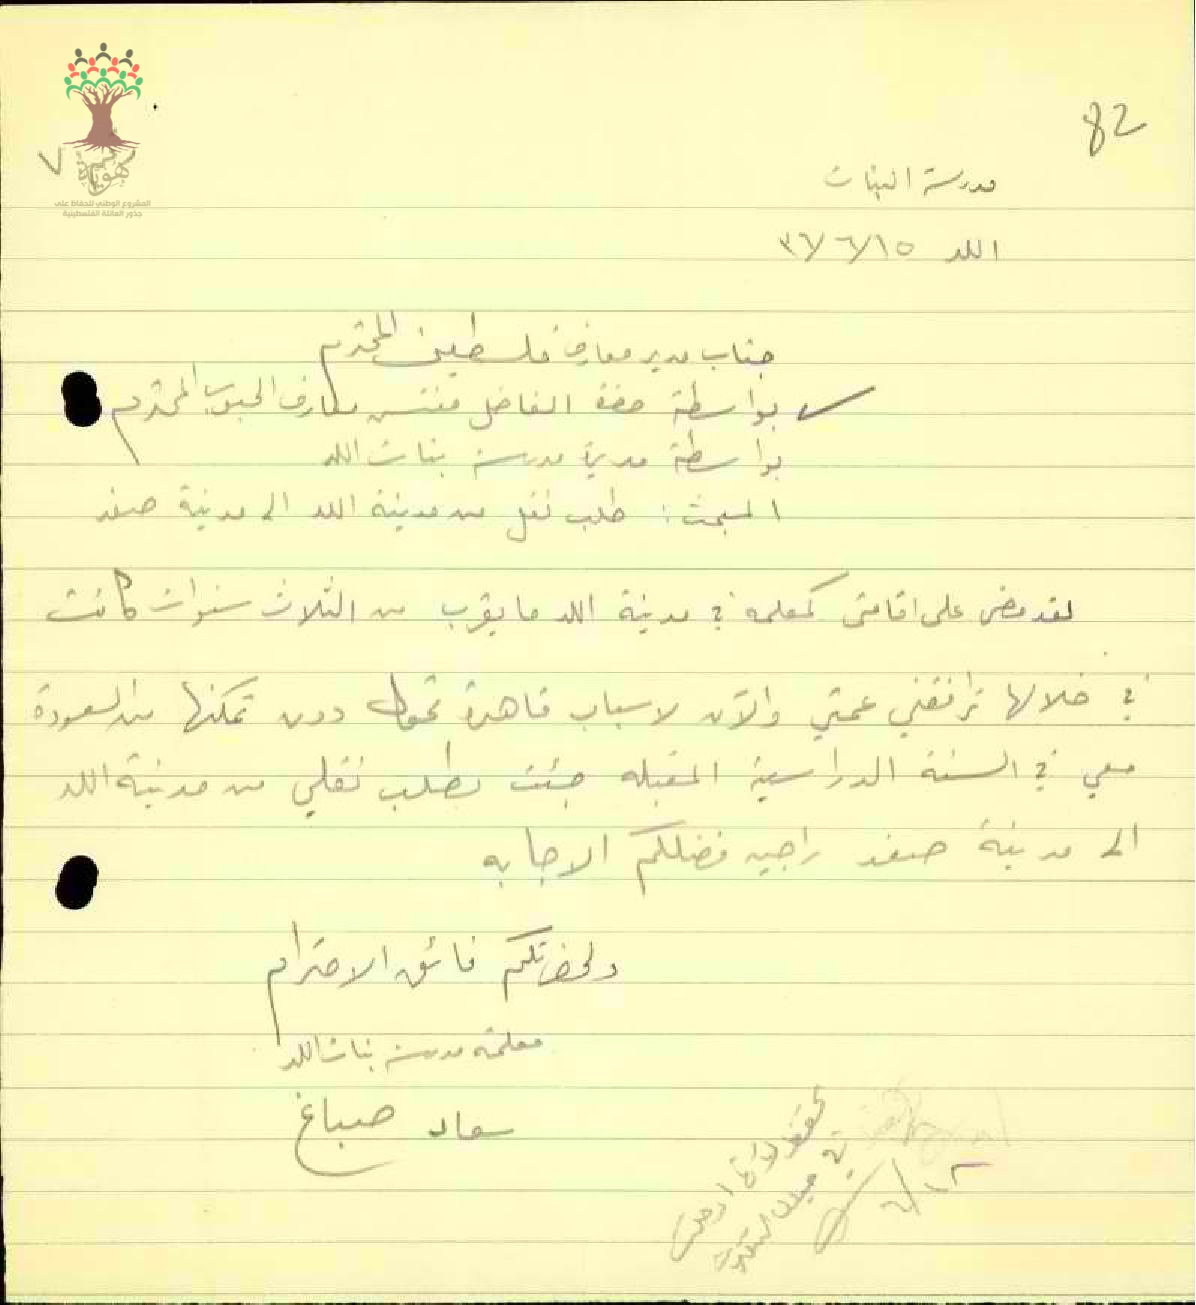 82
هوية
المشروع الوطني للحفاظ على
جذور العائلة الفلسطينية
مدرسة البنات
اللد ٣٦/٦/١٥
جناب مدير معارف فلسطين المحترم
بواسطة حضرة الفاضل مفتش معارف الجنوب المحترم
بواسطة مديرة مدرسة بنات اللد
المبحث: طلب نقل من مدينة اللد الى مدينة صفد
لقد مضى على اقامتي كمعلمه في مدينة اللد ما يقرب من الثلاث سنوات كانت
في خلالها ترافقني عمتي والآن لاسباب قاهرة تحول دون تمكنها من العودة
معي في السنة الدراسية المقبله جئت بطلب نقلي من مدينة اللد
الى مدينة صفد راجيه فضلكم الاجابه
ولحضرتكم فائق الاحترام
معلمة مدرسة بنات اللد
سعاد صباغ